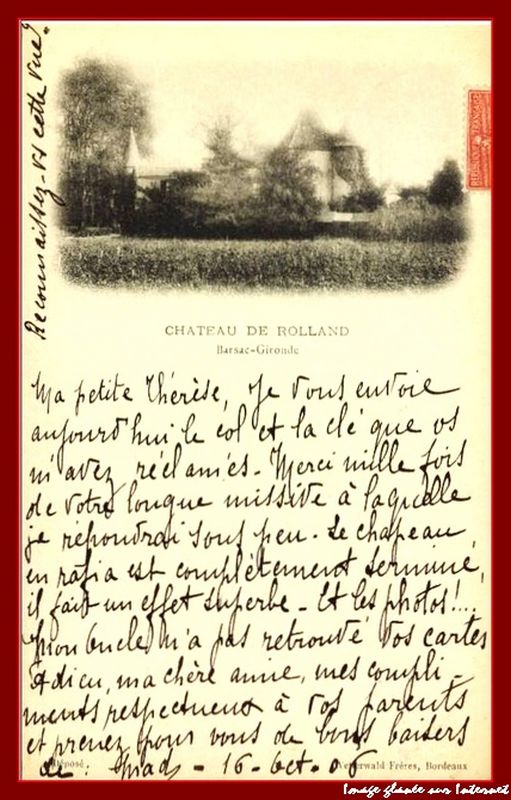 Reconnaissez-vs cette vue?
REPUBLIQUE FRANCAISE
CHATEAU DE ROLLAND
Barsac-Gironde
Ma petite Thérèse, Je vous envoie
aujourd'hui le col et la clé que vs
m'avez réclamés - Merci mille fois
de votre longue missive à laquelle
je répondrai sous peu - Le chapeau
en rafia est complètement terminé,
il fait un effet superbe - Et les photos!...
Mon Oncle m'a pas retrouvé vos cartes
Adieu, ma chère amie, mes compli-
ments respectueux à vos parents
et prenez pour vous de bons baisers
de: Mad - 16 - Oct - 06
Déposé
Frères, Bordeaux
Image glanée sur Internet